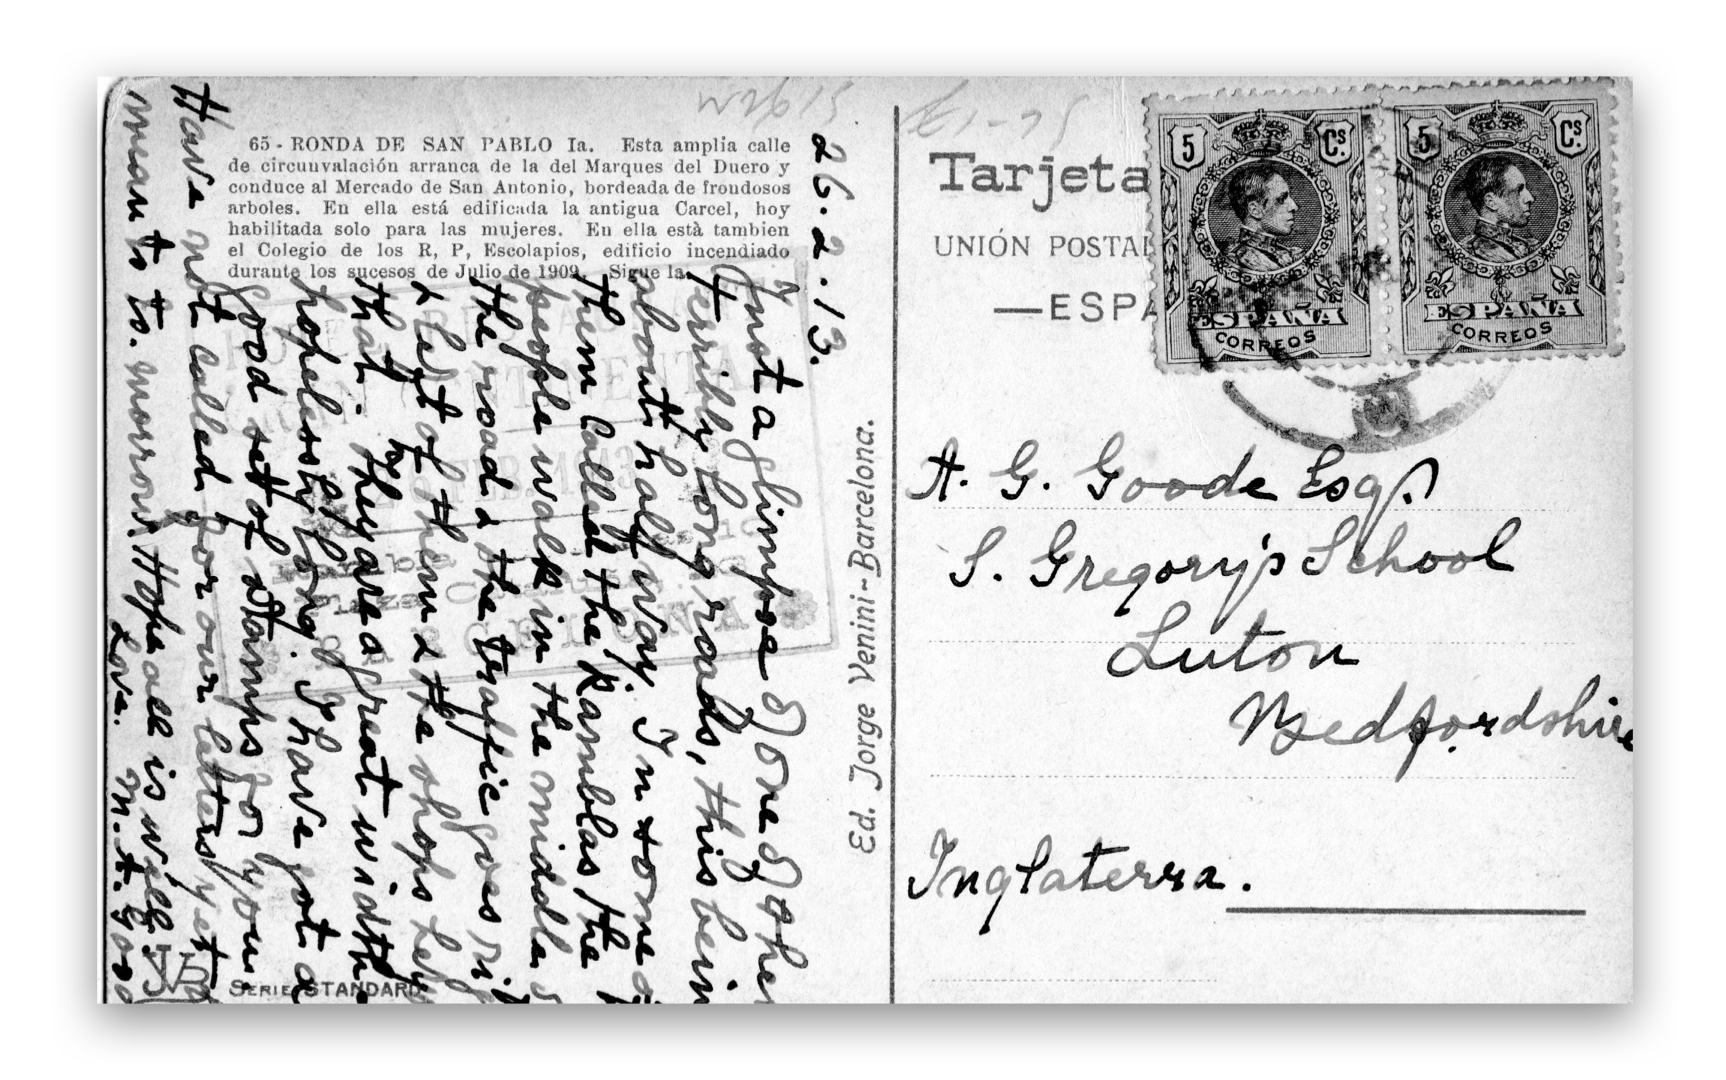 65 - RONDA DE SAN PABLO Ia. Esta amplia calle
de circunvalación arranca de la del Marques del Duero y
conduce al Mercado de San Antonio, bordeada de frondosos
arboles. En ella está edificada la antigua Carcel, hoy
habilitada solo para las mujeres. En ella està tambien
el Colegio de los R, P, Escolapios, edificio incendiado
durante los sucesos de Julio de 1909. Sigue la
26.2.13.
Just a glimpse of one of
terribly long roads, this
about half way. In some
them called the Ramblas the
people walk in the middle
the road & the traffic goes
that of them & the shops
that. They are a great width
hopelessly long. I have got a
good set of stamps for you.
Have not called for our letters yet
mean to to.morrow. Hope all is well.
Love. M.A.
SERIE STANDARD
Ed. Jorge Venini-Barcelona.
Tarjeta
UNIÓN POSTAL
—ESPA
5 Cs. 5 Cs.
ESPAÑA ESPAÑA
CORREOS CORREOS
A. G. Goode Esq.
S. Gregory's School
Luton
Bedfordshire
Inglaterra.